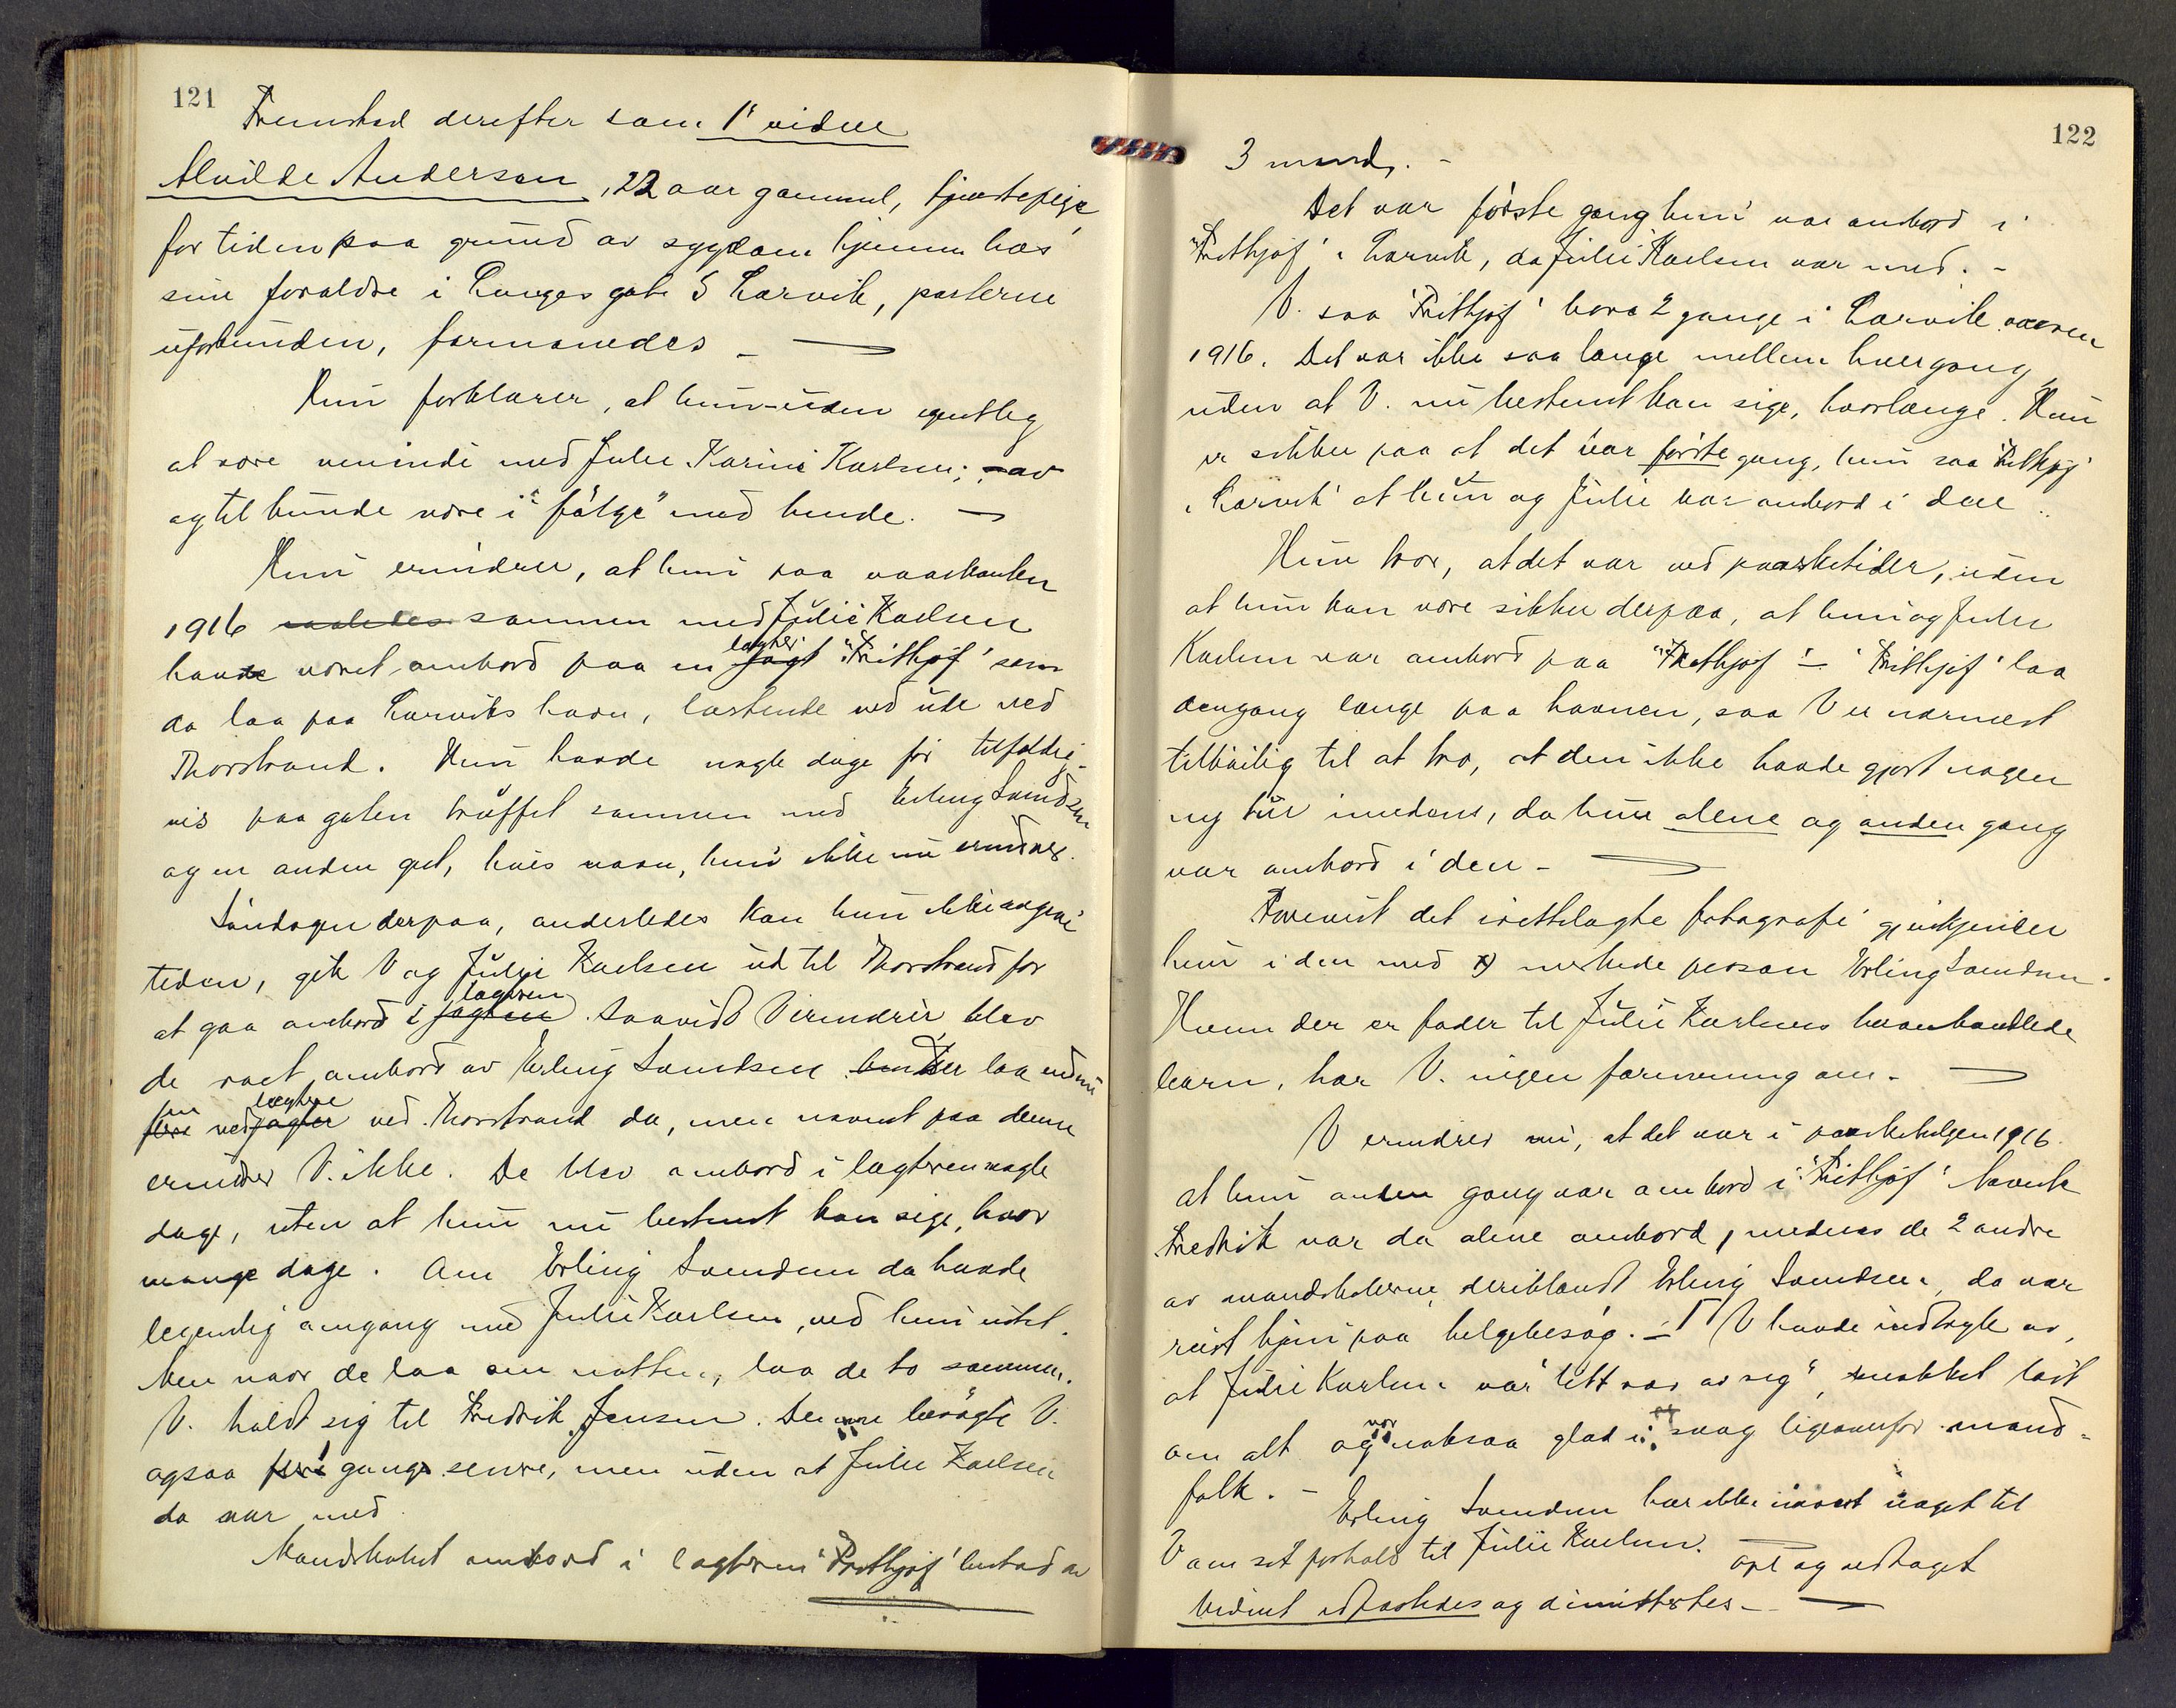 121
Fremstod derefter som 1' vidne
Alvilde Andersen, 22 aar gammel, tjenestepige
for tiden paa grund av sygdom hjemme hos
sine foræld​re i Langes gate 5 Larvik, parterne
uforbunden, formanedes –
Hun forklarer, at hun uden egentlig
at være veninde med Julie Karine Karlsen; av
og til kunde være i "følge" med hende. –
Hun erindrer, at hun paa vaarkanten
1916 saaledes sammen med Julie Karlsen
havde været ombord paa en jagt lægter "Frithjof" som
da laa paa Larviks havn, lastende ved ute ved
Thorstrand. Hun havde nogle dage før tilfældig-
vis paa gaten truffet sammen med Erling Svendsen
og en anden gut, hvis navn, hun ikke nu erindrer.
Søndagen derpaa, anderledes kan hun ikke angive
tiden, gik V og Julie Karlsen ud til Thorstrand for
at gaa ombord i jagten lægteren. Saavidt V erindrer blev
de roet ombord av Erling Svendsen. Der laa endnu
flere en ved jagter lægtere ved Thorstrand da, men navnet paa denne
erindrer V. ikke. De blev ombord i lægteren nogle
dage, uten at hun nu bestemt kan sige, hvor
mange dage. Om Erling Svendsen da havde
legemlig omgang med Julie Karlsen, ved hun intet.
Men naar de laa om natten, laa de to sammen.
V. holdt sig til Fredrik Jensen. Denne besøgte V.
ogsaa flere gange senere, men uden at Julie Karlsen
da var med.
Mandskabet ombord i lægteren "Frithjof" bestod av
122
3 mand. –
Det var første gang hun var ombord i
"Frithjof" i Larvik, da Julie Karlsen var med. –
V. saa "Frithjof" bare 2 gange i Larvik vaaren
1916. Det var ikke saa længe mellem hver gang,
uden at V. nu bestemt kan sige, hvorlænge. Hun
er sikker paa at det var første gang, hun saa "Frithjof"
i Larvik at hun og Julie var ombord i den.
Hun tror, at det var ved paasketider, uden
at hun kan være sikker derpaa, at hun og Julie
Karlsen var ombord paa "Frithjof" – "Frithjof" laa
dengang længe paa havnen, saa V er nærmest
tilbøilig til at tro, at den ikke havde gjort nogen
ny tur imedens, da hun alene og anden gang
var ombord i den –
Forevist det irettelagte fotografi gjenkjender
hun i den med x) merkede person Erling Svendsen.
Hvem der er fader til Julie Karlsens barn
barn, har V. ingen formening om. –
V erindrer nu, at det var i paaskehelgen 1916.
at hun anden gang var ombord i "Frithjof".
Fredrik var da alene ombord, medens de 2 andre
av mandskaberne, deriblandt Erling Svendsen, da var
reist hjem paa helgebesøg. – V havde indtryk av,
at Julie Karlsen var "lett av sig", snakket løst
om alt og var noksaa glad i ligeoverfor mand-
folk. –
Erling Svendsen har ikke noget til
V om sit forhold til Julie Karlsen. Opl og vedtaget
Vidnet og dimittertes –